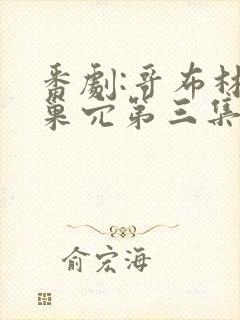 番劇:哥布林
巢穴第三集
俞宏海